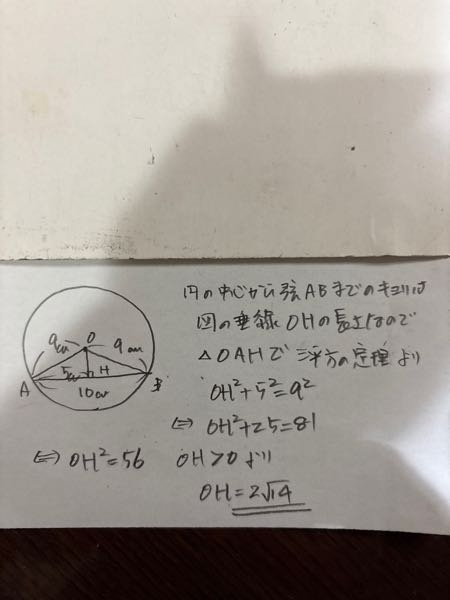 円の中心から弦ABまでのキョリは
図の垂線OHの長さなので
△OAHで三平方の定理より
OH²+5²=9²
⇔ OH²+25=81
⇔ OH²=56 OH>0より
OH=2√14
O
9cm 9cm
5cm H
A B
10cm